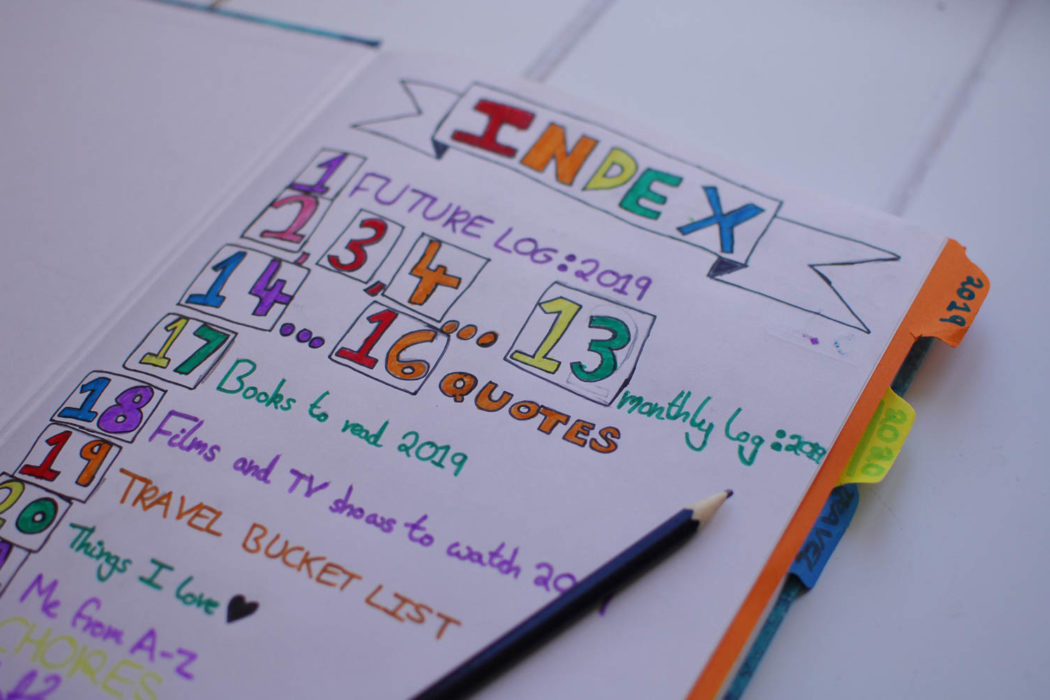 INDEX
1 FUTURE LOG:2019
2, 3, 4 ... 13 monthly log:2019
14 ... 16 QUOTES
17 Books to read 2019
18 Films and TV shows to watch
19 TRAVEL BUCKET LIST
20 Things I love ♥
Me from A-Z
2019
2020
TRAVEL